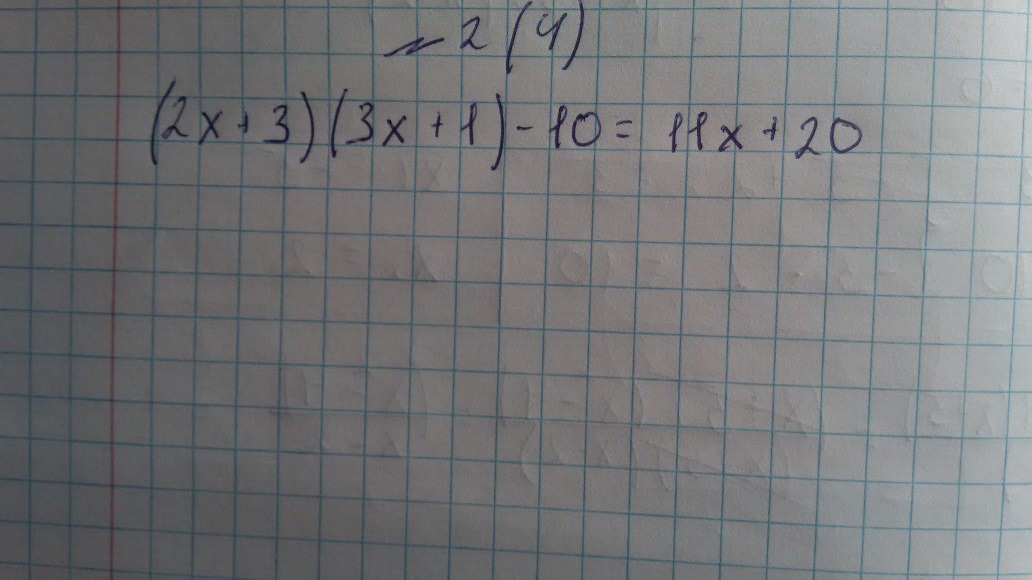 № 2 (4)
(2x+3)(3x+1)-10= 11x+20